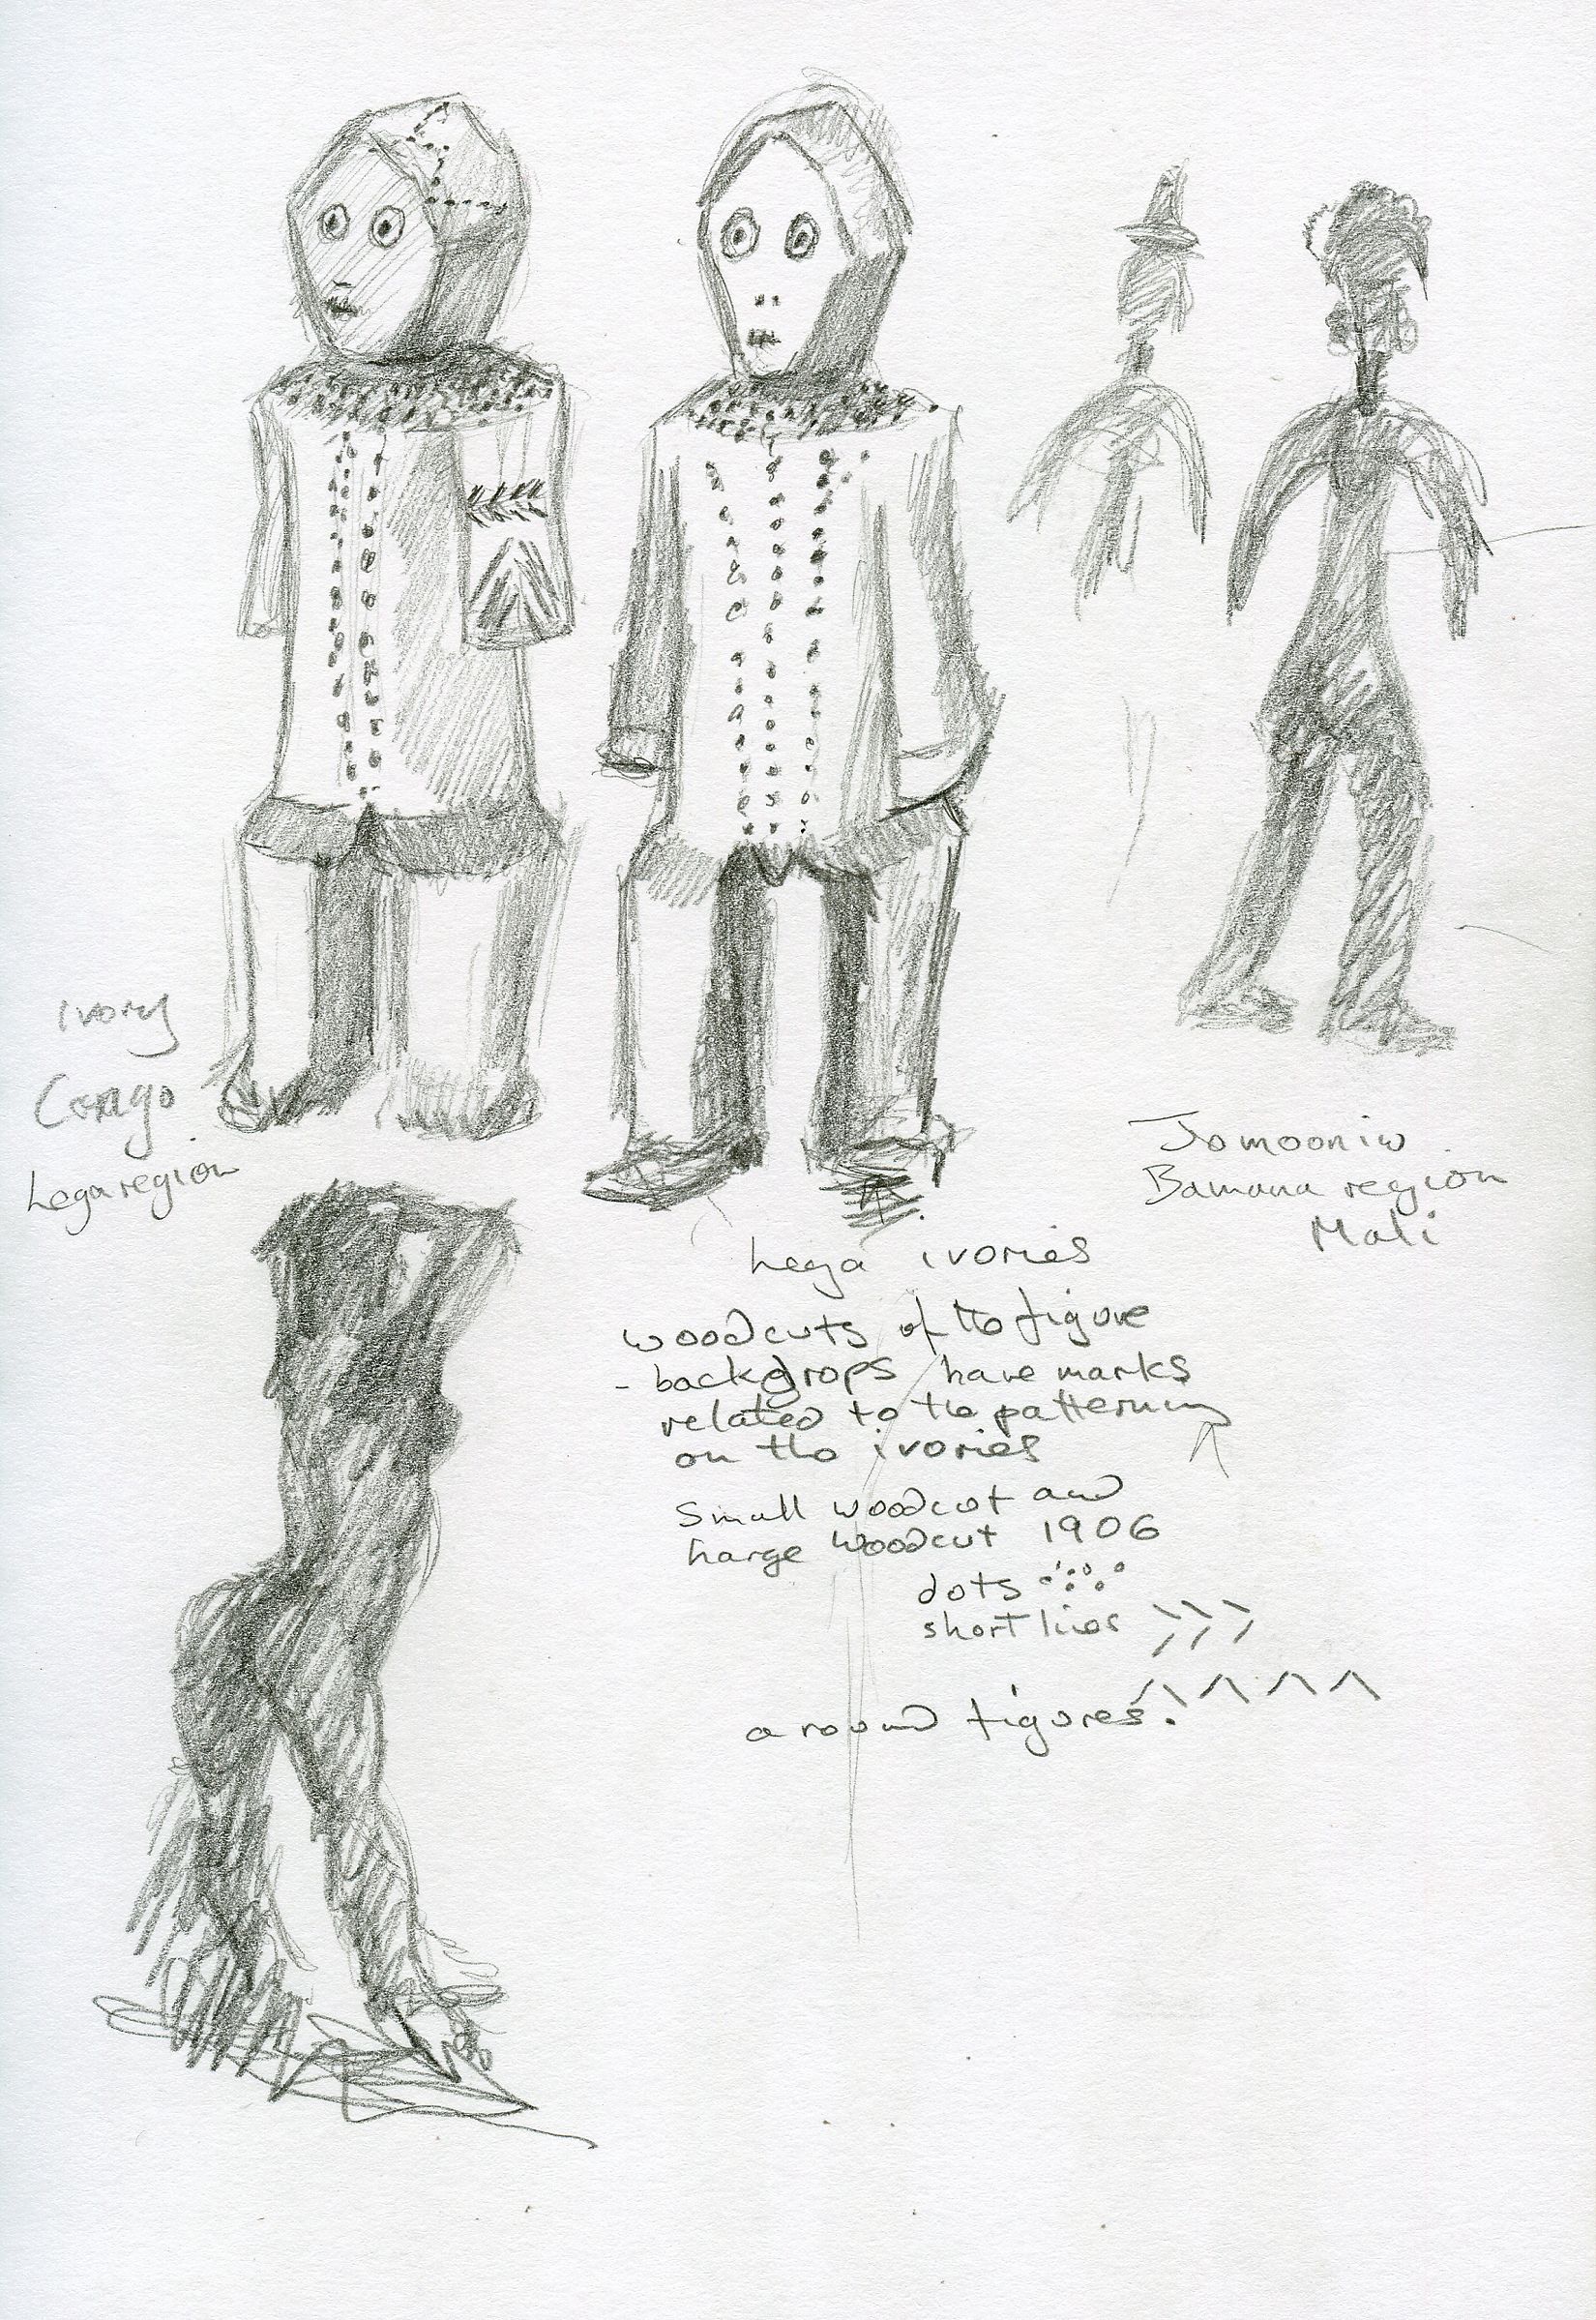 ivory
Congo
Lega region
Jomooniw
Bamana region
Mali
Lega ivories
woodcuts of the figure
- backdrops have marks
related to the patterning
on the ivories
Small woodcut and
Large woodcut 1906
dots
short lines
around figures.